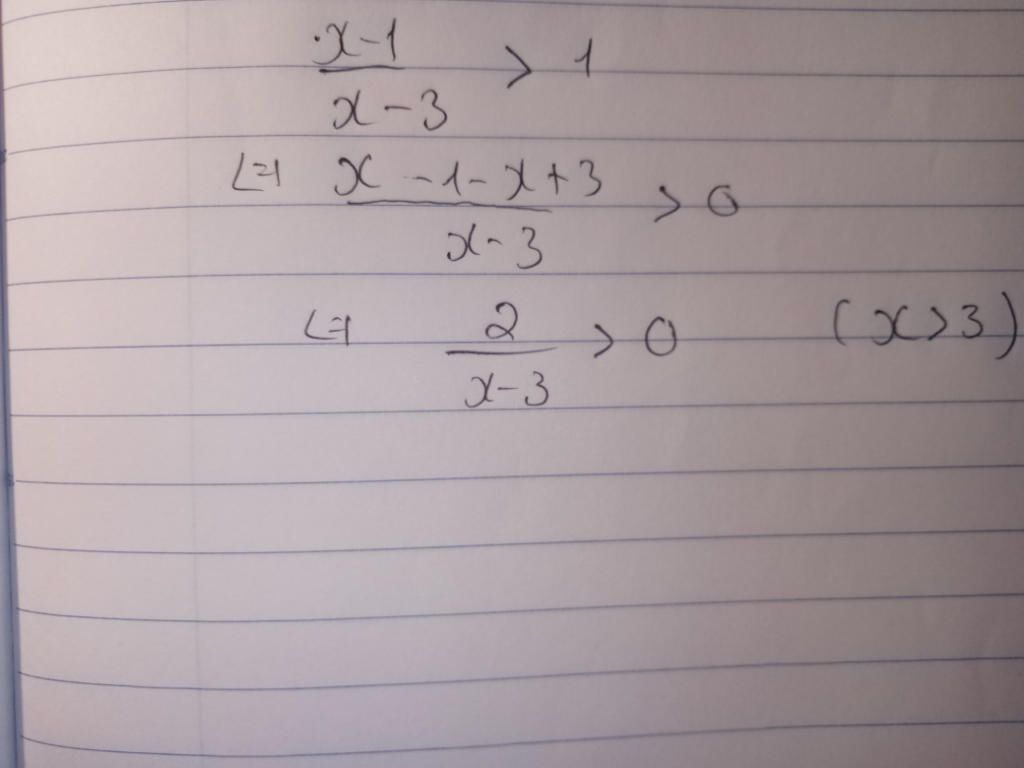 x-1/x-3 > 1
<=> x-1-x+3/x-3 > 0
<=> 2/x-3 > 0 (x>3)